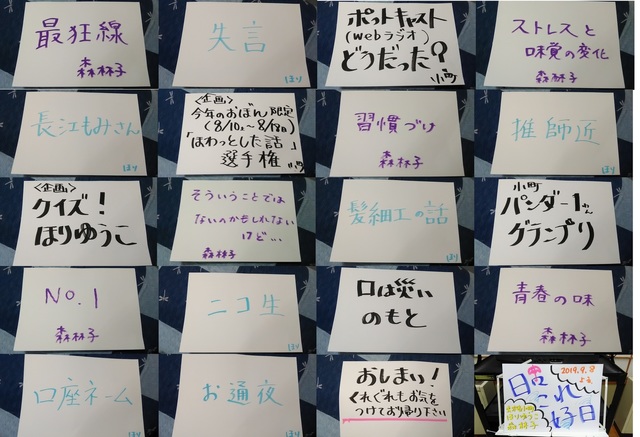 最狂線
森林子
失言
ほり
ポットキャスト
(webラジオ)
どうだった?
小町
ストレスと
味覚の変化
森林子
長江もみさん
ほり
<企画>
今年のおぼん限定
(8/10〜8/19の)
「ほわっとした話」
選手権
小町
習慣づけ
森林子
推師近
ほり
<企画>
クイズ!
ほりゆうこ
そういうことでは
ないのかもしれない
けど…
森林子
髪細工の話
ほり
小町
パンダー1さん
グランプリ
NO.1
森林子
ニコ生
ほり
口は災い
のもと
青春の味
森林子
口座ネーム
ほり
お通夜
ほり
おしまい!
くれぐれもお気を
つけてお帰り下さい
2019.9.8
日日これ
好日
ほりゆうこ
森林子